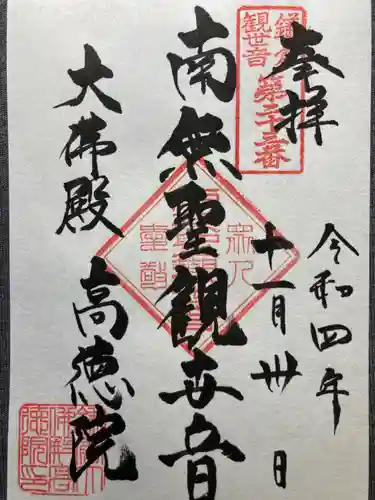 奉拝
鎌倉
観世音
第二十三番
令和四年
十一月卅日
南無聖観世音
大佛殿
高徳院